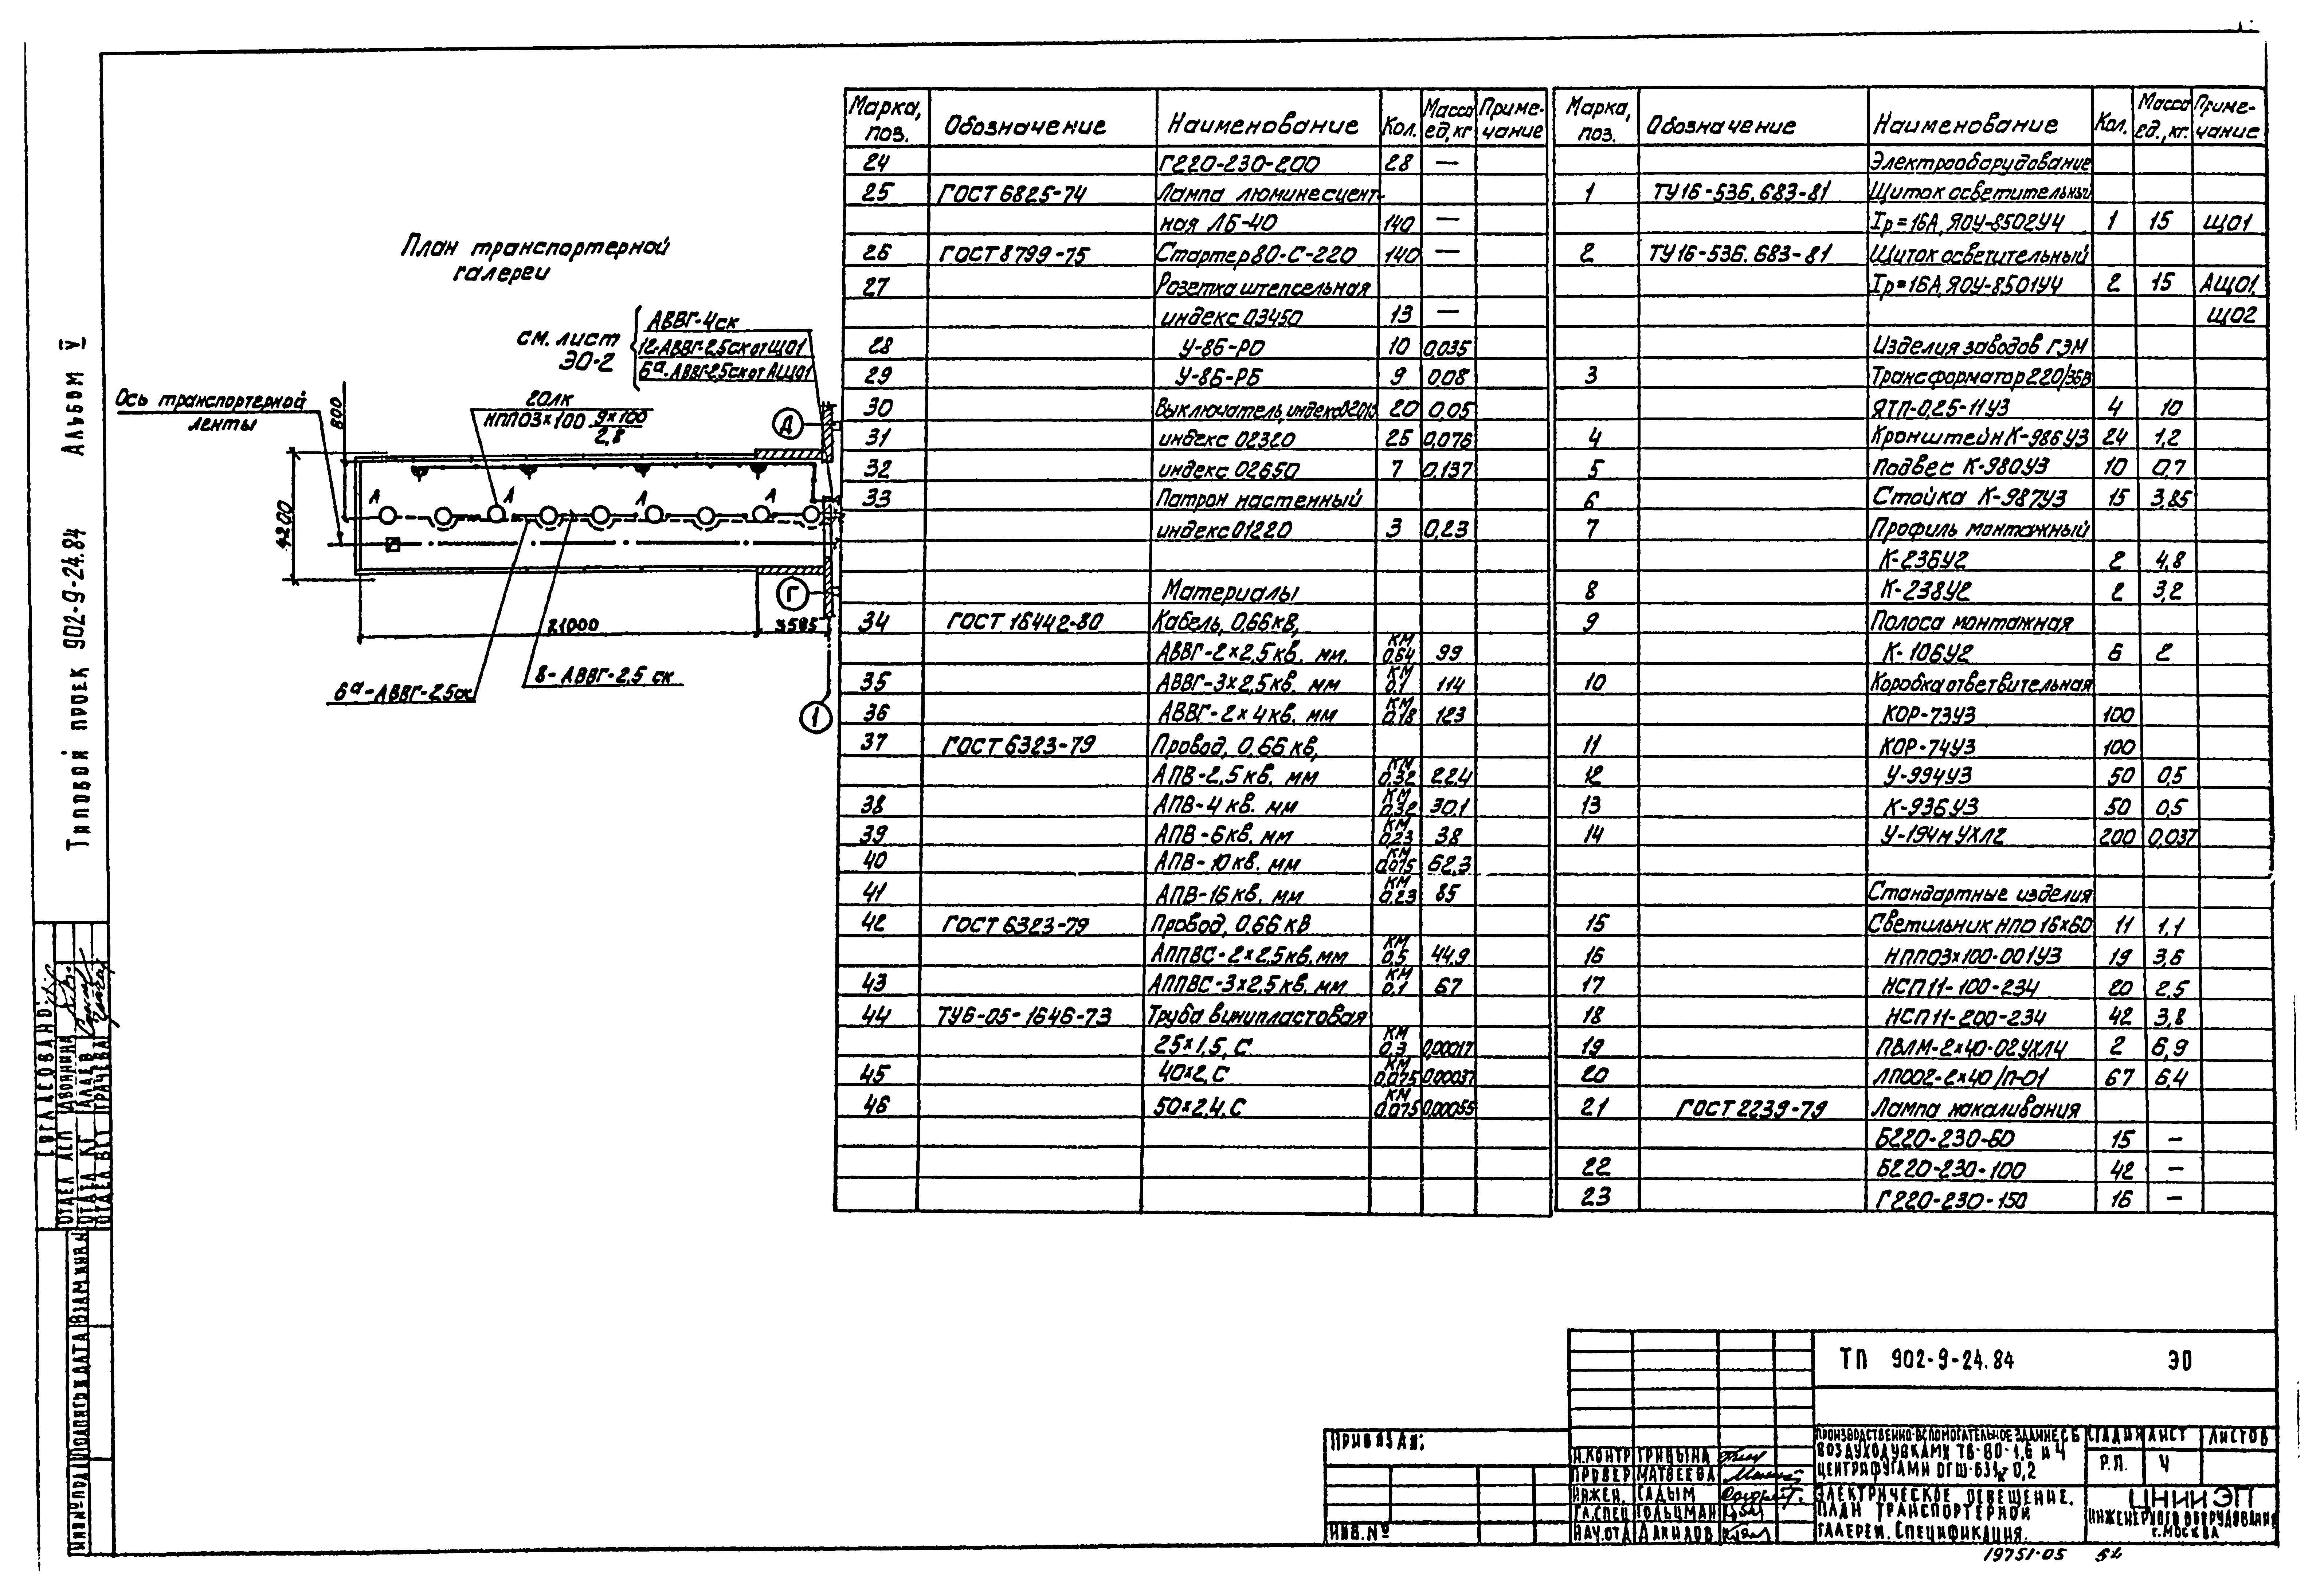 Альбом V
Типовой проек 902-9-24.84
План транспортерной
галереи
см. лист
ЭО-2
АВВГ-4ск
12-АВВГ-2,5ск от ЩО1
6ª-АВВГ-2,5ск от АЩО1
Ось транспортерной
ленты
20лк
НПП03×100 9×100
2,8
800
4200
А А А А
Д
Г
1
21000 3585
6ª-АВВГ-2,5ск
8-АВВГ-2,5 ск
Марка, поз. Обозначение Наименование Кол. Масса ед,кг Примечание
24 Г220-230-200 28 —
25 ГОСТ 6825-74 Лампа люминесцент-
ная ЛБ-40 140 —
26 ГОСТ 8799-75 Стартер 80-С-220 140 —
27 Розетка штепсельная
индекс 03450 13 —
28 У-86-РО 10 0,035
29 У-86-РБ 9 0,08
30 Выключатель, индекс 02010 20 0,05
31 индекс 02320 25 0,076
32 индекс 02650 7 0,137
33 Патрон настенный
индекс 01220 3 0,23
Материалы
34 ГОСТ 16442-80 Кабель, 0,66кв,
АВВГ-2×2,5кв. мм. км 0,64 99
35 АВВГ-3×2,5кв. мм км 0,1 114
36 АВВГ-2×4кв. мм км 0,18 123
37 ГОСТ 6323-79 Провод, 0,66 кв,
АПВ-2,5кв. мм км 0,32 22,4
38 АПВ-4 кв. мм км 0,32 30,1
39 АПВ-6кв. мм км 0,23 38
40 АПВ-10кв. мм км 0,075 62,3
41 АПВ-16кв. мм км 0,23 85
42 ГОСТ 6323-79 Провод, 0,66 кВ
АППВС-2×2,5кв.мм км 0,5 44,9
43 АППВС-3×2,5кв. мм км 0,1 67
44 ТУ6-05-1646-73 Труба винипластовая
25×1,5, С км 0,3 0,00017
45 40×2, С км 0,075 0,00037
46 50×2,4, С км 0,075 0,00055
Марка, поз. Обозначение Наименование Кол. Масса ед., кг. Примечание
Электрооборудование
1 ТУ16-536.683-81 Щиток осветительный
Iр=16А, ЯОУ-8502У4 1 15 ЩО1
2 ТУ16-536.683-81 Щиток осветительный
Iр=16А, ЯОУ-8501У4 2 15 АЩО1,
ЩО2
Изделия заводов ГЭМ
3 Трансформатор 220/36В
ЯТП-0,25-11У3 4 10
4 Кронштейн К-986У3 24 1,2
5 Подвес К-980У3 10 0,7
6 Стойка К-987У3 15 3,85
7 Профиль монтажный
К-236У2 2 4,8
8 К-238У2 2 3,2
9 Полоса монтажная
К-106У2 6 2
10 Коробка ответвительная
КОР-73У3 100
11 КОР-74У3 100
12 У-994У3 50 0,5
13 К-936У3 50 0,5
14 У-194м УХЛ2 200 0,037
Стандартные изделия
15 Светильник НПО 16×60 11 1,1
16 НПП03×100-001У3 19 3,6
17 НСП11-100-234 20 2,5
18 НСП11-200-234 42 3,8
19 ПВЛМ-2×40-02УХЛ4 2 6,9
20 ЛПО02-2×40/П-01 67 6,4
21 ГОСТ 2239-79 Лампа накаливания
Б220-230-60 15 —
22 Б220-230-100 42 —
23 Г220-230-150 16 —
Согласовано:
Отдел АСП Двоинина
Отдел КГ Алаев
Отдел ВГТ Грачева
Инв№подл Подпись и дата Взам инв№
Привязан:
Инв.№
Н.контр Гривына
Провер Матвеева
Инжен. Гадым
Гл.спец Гольцман
Нач.отд Данилов
ТП 902-9-24.84 ЭО
Производственно-вспомогательное здание с 6
воздуходувками ТВ-80-1,6 и 4
центрифугами ОГШ-631к-0,2
Стадия Лист Листов
Р.П. 4
Электрическое освещение.
План транспортерной
галереи. Спецификация.
ЦНИИЭП
инженерного оборудования
г. Москва
19751-05